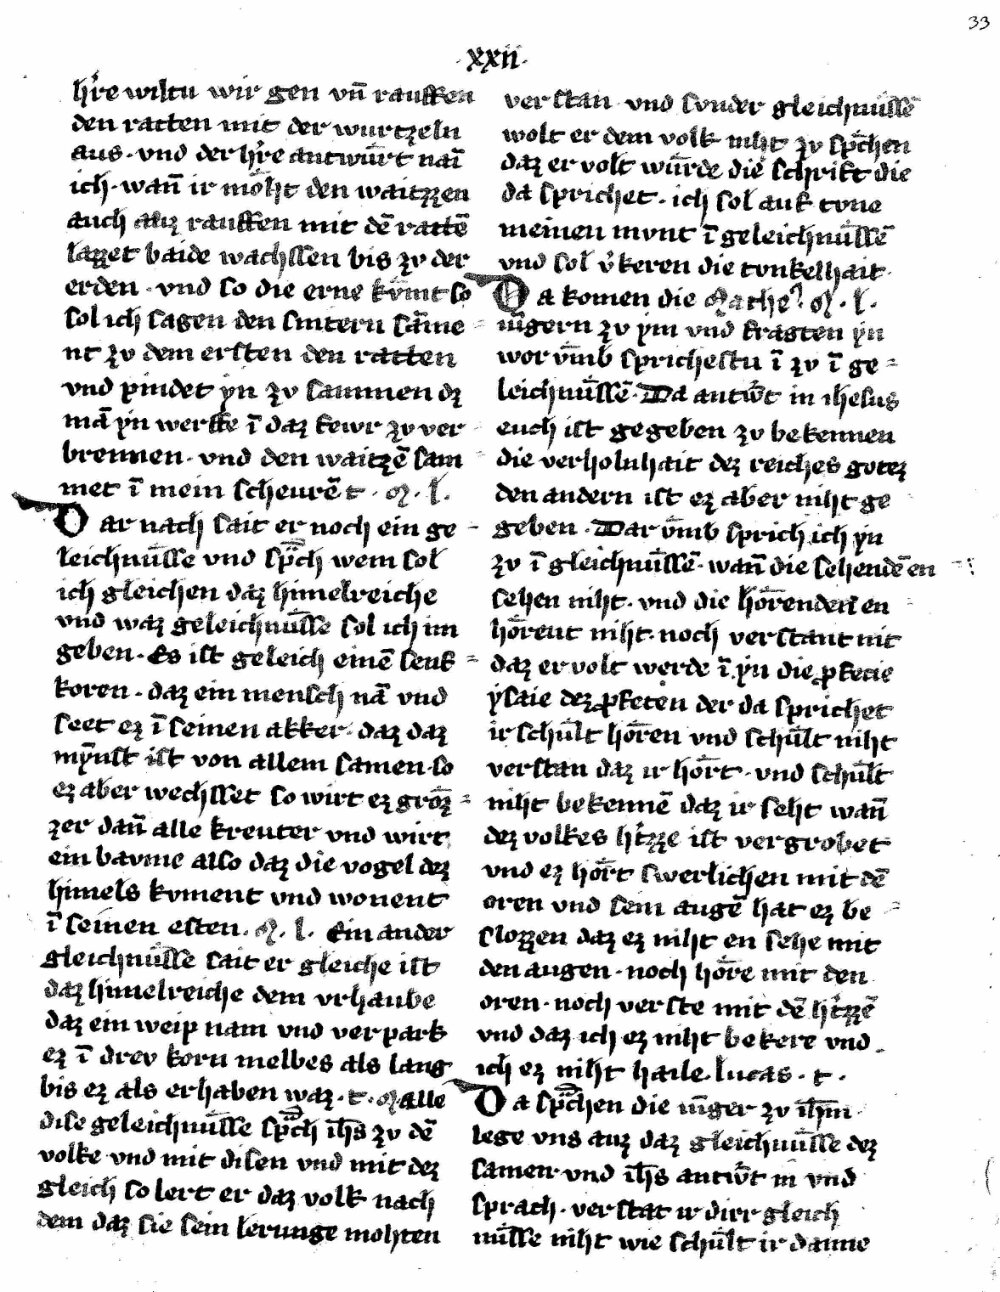 33
·xxii·
hr̄e wiltu wir gen vn̄ rauffen
den ratten mit der wurtzeln
aus · vnd der hr̄e antwūrt naī
ich · wan̄ ir mo̊ht den waitzzen
auch auz rauffen mit dē rattē
lazzet baide wachssen bis zv der
erden · vnd so die erne kv̄mt so
sol ich sagen den snitern sāme
nt zv dem ersten den ratten
vnd pindet ẏn zv sammen dz
mā ẏn werffe ī daz fewr zv ver
brennen · vnd den waitzē sam
met ī mein scheurē t · M · l ·
Dar nach sait er noch ein ge-
leichnu̅sse vnd sp̄ch wem sol
ich gleichen daz himelreiche
vnd waz geleichnu̅sse sol ich im
geben · Es ist geleich einē senf-
koren · daz ein mensch nā vnd
seet ez ī seinen akker · daz daz
mẏn̄st ist von allem samen · so
ez aber wechsset so wirt ez grōz-
zer dan̄ alle kreuter vnd wirt
ein bavme also daz die vogel dez
himels kvment vnd wonent
ī seinen esten · M · l · Ein ander
gleichnu̅sse sait er gleiche ist
daz himelreiche dem vrhaube
daz ein weip nam vnd verpark
ez ī drev korn melbes als lang
bis ez als erhaben waz · t · M alle
dise geleichnu̅sse sp̄ch ih̄s zv dē
volke vnd mit disen vnd mit dez
gleich so lert er daz volk nach
dem daz sie sein lerunge mohten
verstan vnd svnder gleichnu̅ssē
wolt er dem volk niht zv sp̄chen
daz er volt wu̅rde die schrift die
da sprichet · ich sol auf tvne
meinen mvnt ī geleichnu̅ssē
vnd sol v̄keren die tvnkelhait ·
Da komen die Mathe9 M · l ·
iu̅gern zv ẏm vnd fragten ẏn
wor v̄mb sprichestu ī zv ī ge-
leichnu̅ssē · Da antwt̄ in ihesus
euch ist gegeben zv bekennen
die verholnhait dez reiches gotez
den andern ist ez aber niht ge
geben · Dar v̄mb sprich ich ẏn
zv ī gleichnu̅ssē · wan̄ die sehendē en
sehen niht · vnd die ho̅renden en
ho̅rent niht · noch verstant nit
daz er volt werde ī ẏn die ꝓfecie
ẏsaie dez ꝓfeten der da sprichet
ir schu̅lt ho̅ren vnd schu̅lt niht
verstan daz ir ho̅rt · vnd schu̅lt
niht bekennē daz ir seht wan̄
dez volkes h̄tzze ist vergrobet
vnd ez ho̅rt swerlichen mit dē
oren vnd sein augē hat ez be-
slozzen daz ez niht en sehe mit
den augen · noch ho̅re mit den
oren · noch verste mit dē h̄tzzē
vnd daz ich ez niht bekere vnd
ich ez niht haile · lucas · t ·
Da sp̄chen die iu̅ger zv ih̄m
lege vns auz daz gleichnu̅sse dez
samen · vnd ih̄s antwt̄ in vnd
sprach · verstat ir dirr gleich
nu̅sse niht wie schu̅lt ir danne